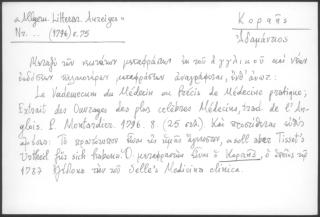 «Allgem. Litterar. Anzeiger»
Nr. .. (1796) σ. 75
Κοραῆς
Ἀδαμάντιος
Μεταξὺ τῶν νεωτέρων μεταφράσεων ἐκ τοῦ ἀγγλικοῦ καὶ νέων
ἐκδόσεων παλαιοτέρων μεταφράσεων ἀναγράφεται, ὑπ' ἀριθ.:
Le Vademecum du Médecin ou Précis de Médecine pratique;
Extrait des Ouvrages des plus celèbres Médecins, trad. de l'An-
glois. P. Montardier. 1796. 8. (25 σελ.) Καὶ προστίθεται εὐθὺς
ἀμέσως: Τὸ πρωτότυπον εἶναι εἰς ἡμᾶς ἄγνωστον, »soll aber Tissot's
Urtheil für sich haben«. Ὁ μεταφραστὴς εἶναι ὁ Κοραῆς, ὁ ὁποῖος τῷ
1787 ἐξέδωκε τὴν τοῦ Selle's Medicina clinica.